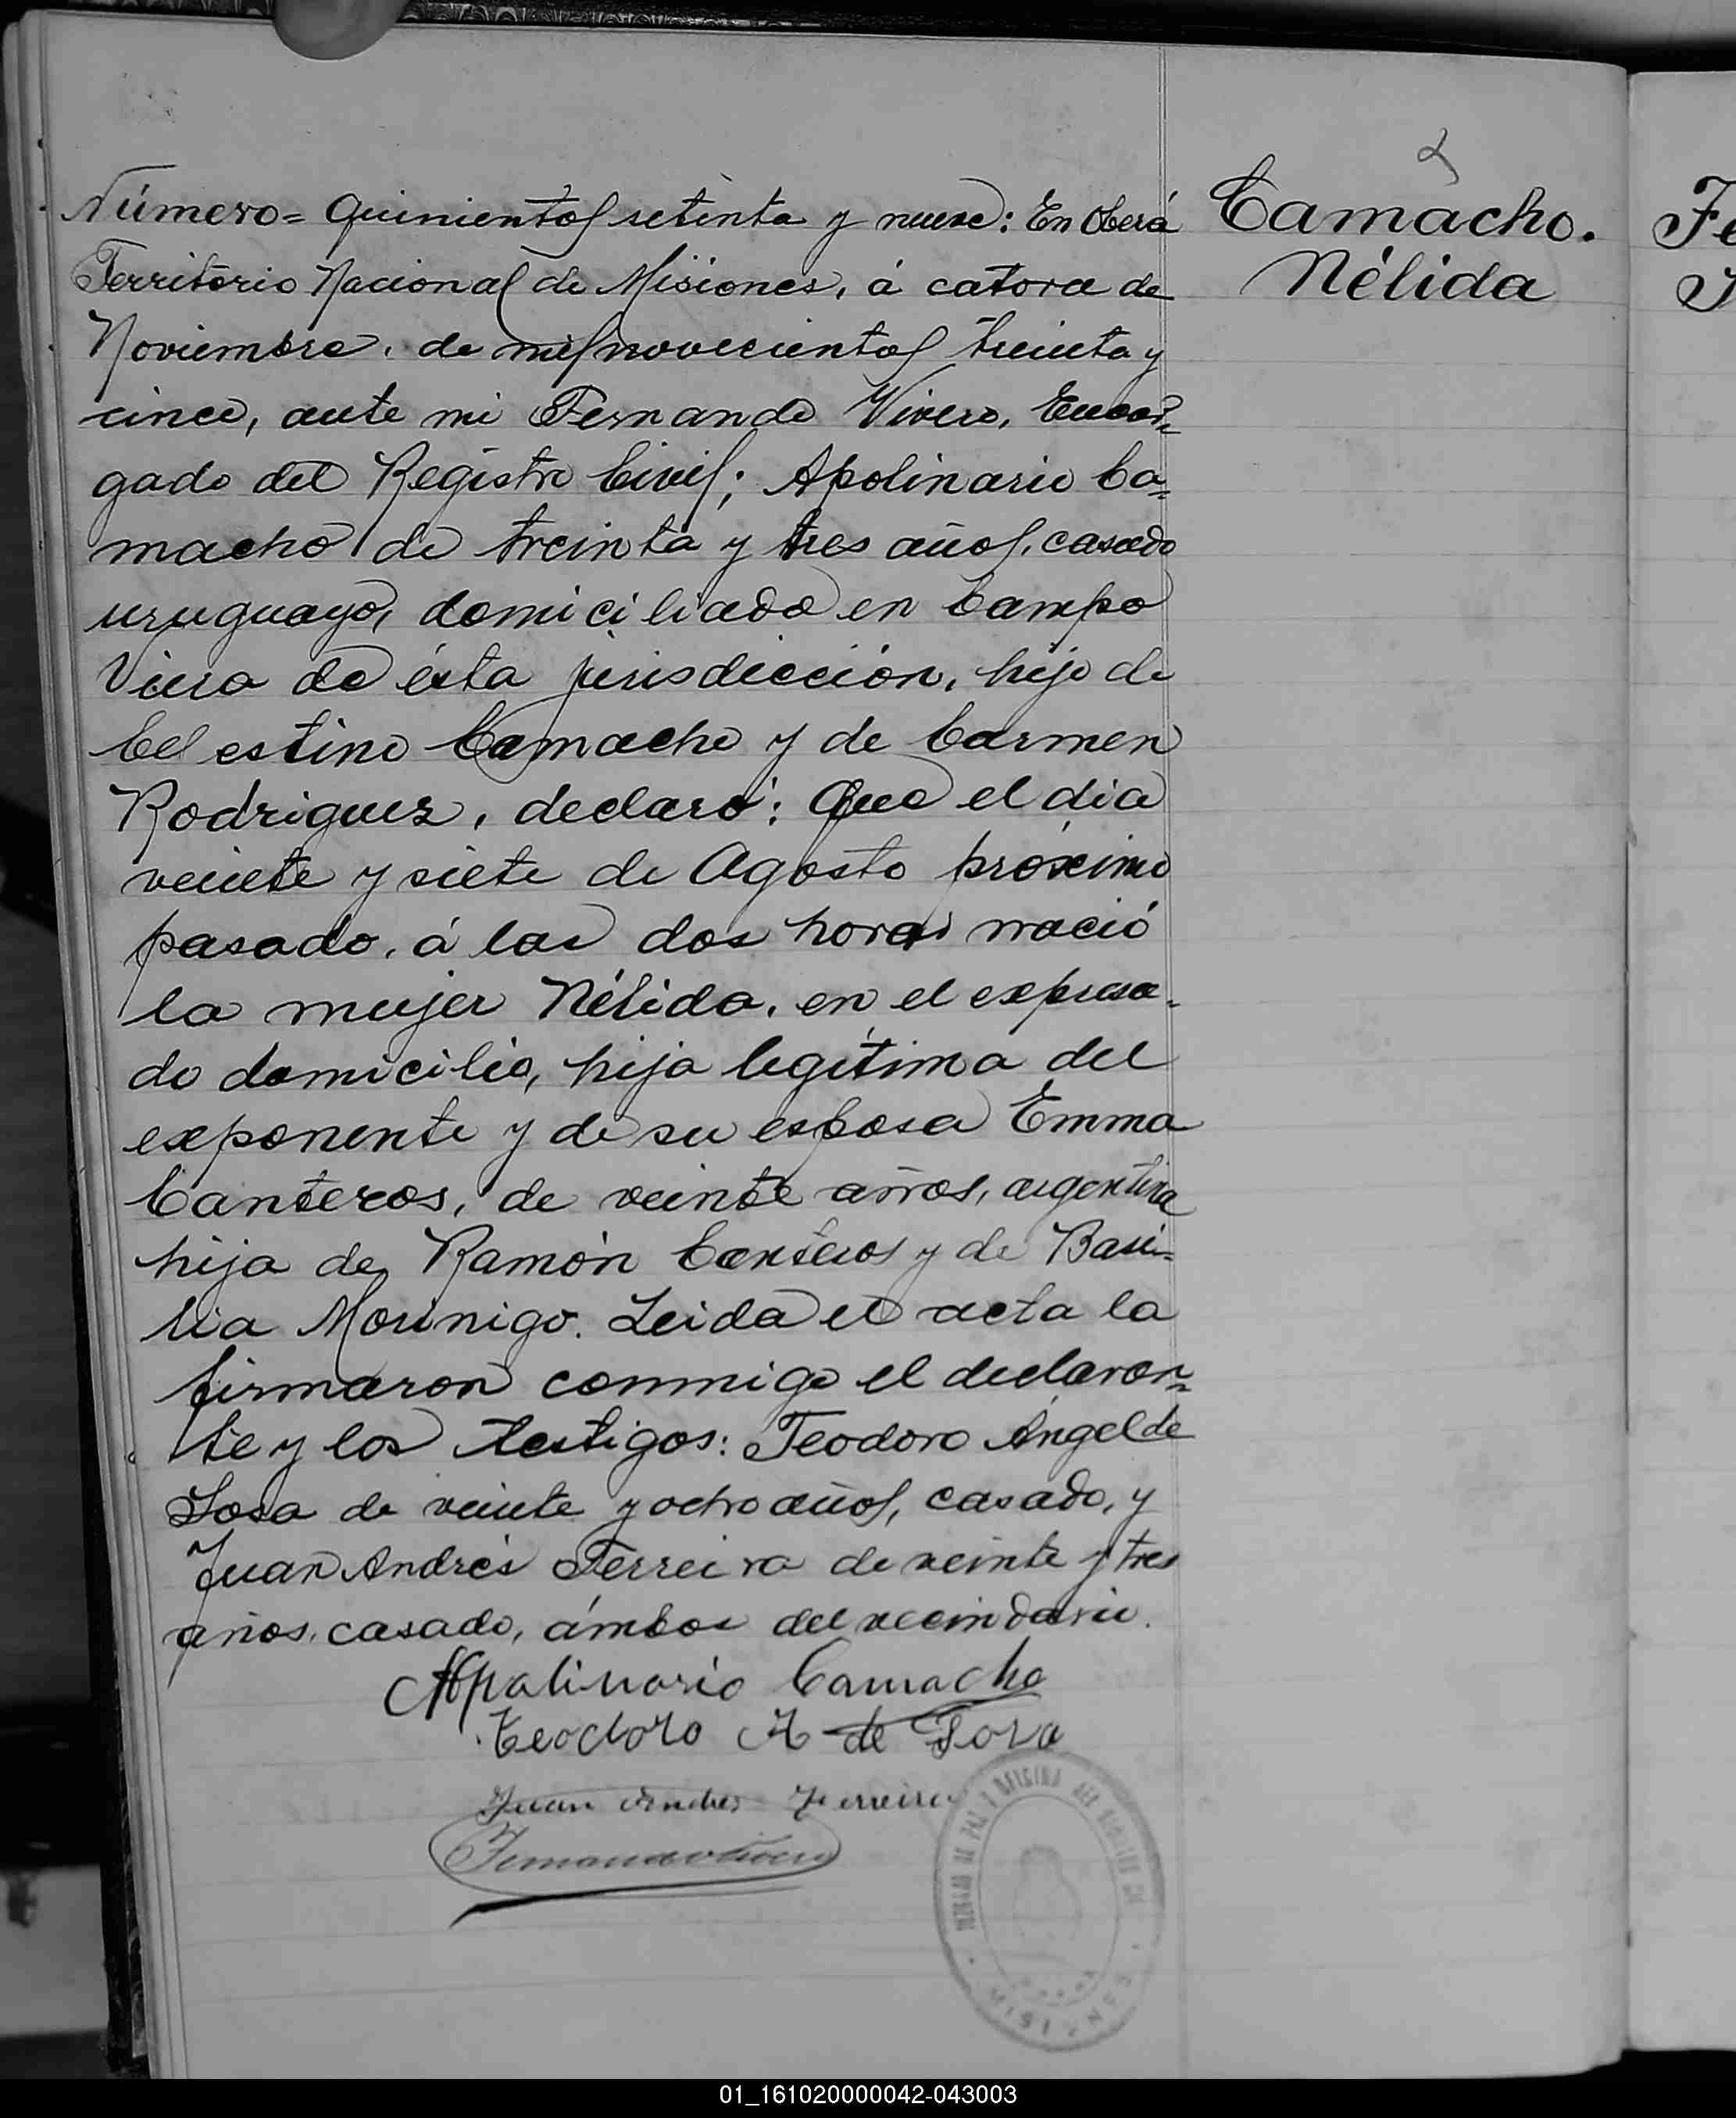 Número= Quinientos setenta y nueve: En Oberá
Territorio Nacional de Misiones, á catorce de
Noviembre, de mil novecientos treinta y
cinco, ante mi Fernando Vivero, Encar=
gado del Registro Civil; Apolinario Ca=
macho de treinta y tres años, casado
uruguayo, domiciliado en Campo
Viera de ésta jurisdicción, hijo de
Celestino Camacho y de Carmen
Rodriguez, declaró: Que el dia
veinte y siete de Agosto próximo
pasado, á las dos horas nació
la mujer Nélida, en el expresa-
do domicilio, hija legítima del
exponente y de su esposa Emma
Canteros, de veinte años, argentina
hija de Ramón Canteros y de Basi=
lia Morinigo. Leida el acta la
firmaron conmigo el declaran=
te y los testigos: Teodoro Angel de
Sosa de veinte y ocho años, casado, y
Juan Andrés Ferreira de veinte y tres
años, casado, ámbos del vecindario.
Apolinario Camacho
Teodoro A de Sosa
Juan Andres Ferreira
Fernando Vivero
Camacho.
Nélida
JUZGADO DE PAZ Y OFICINA DEL REGISTRO
MISIONES
01_161020000042-043003